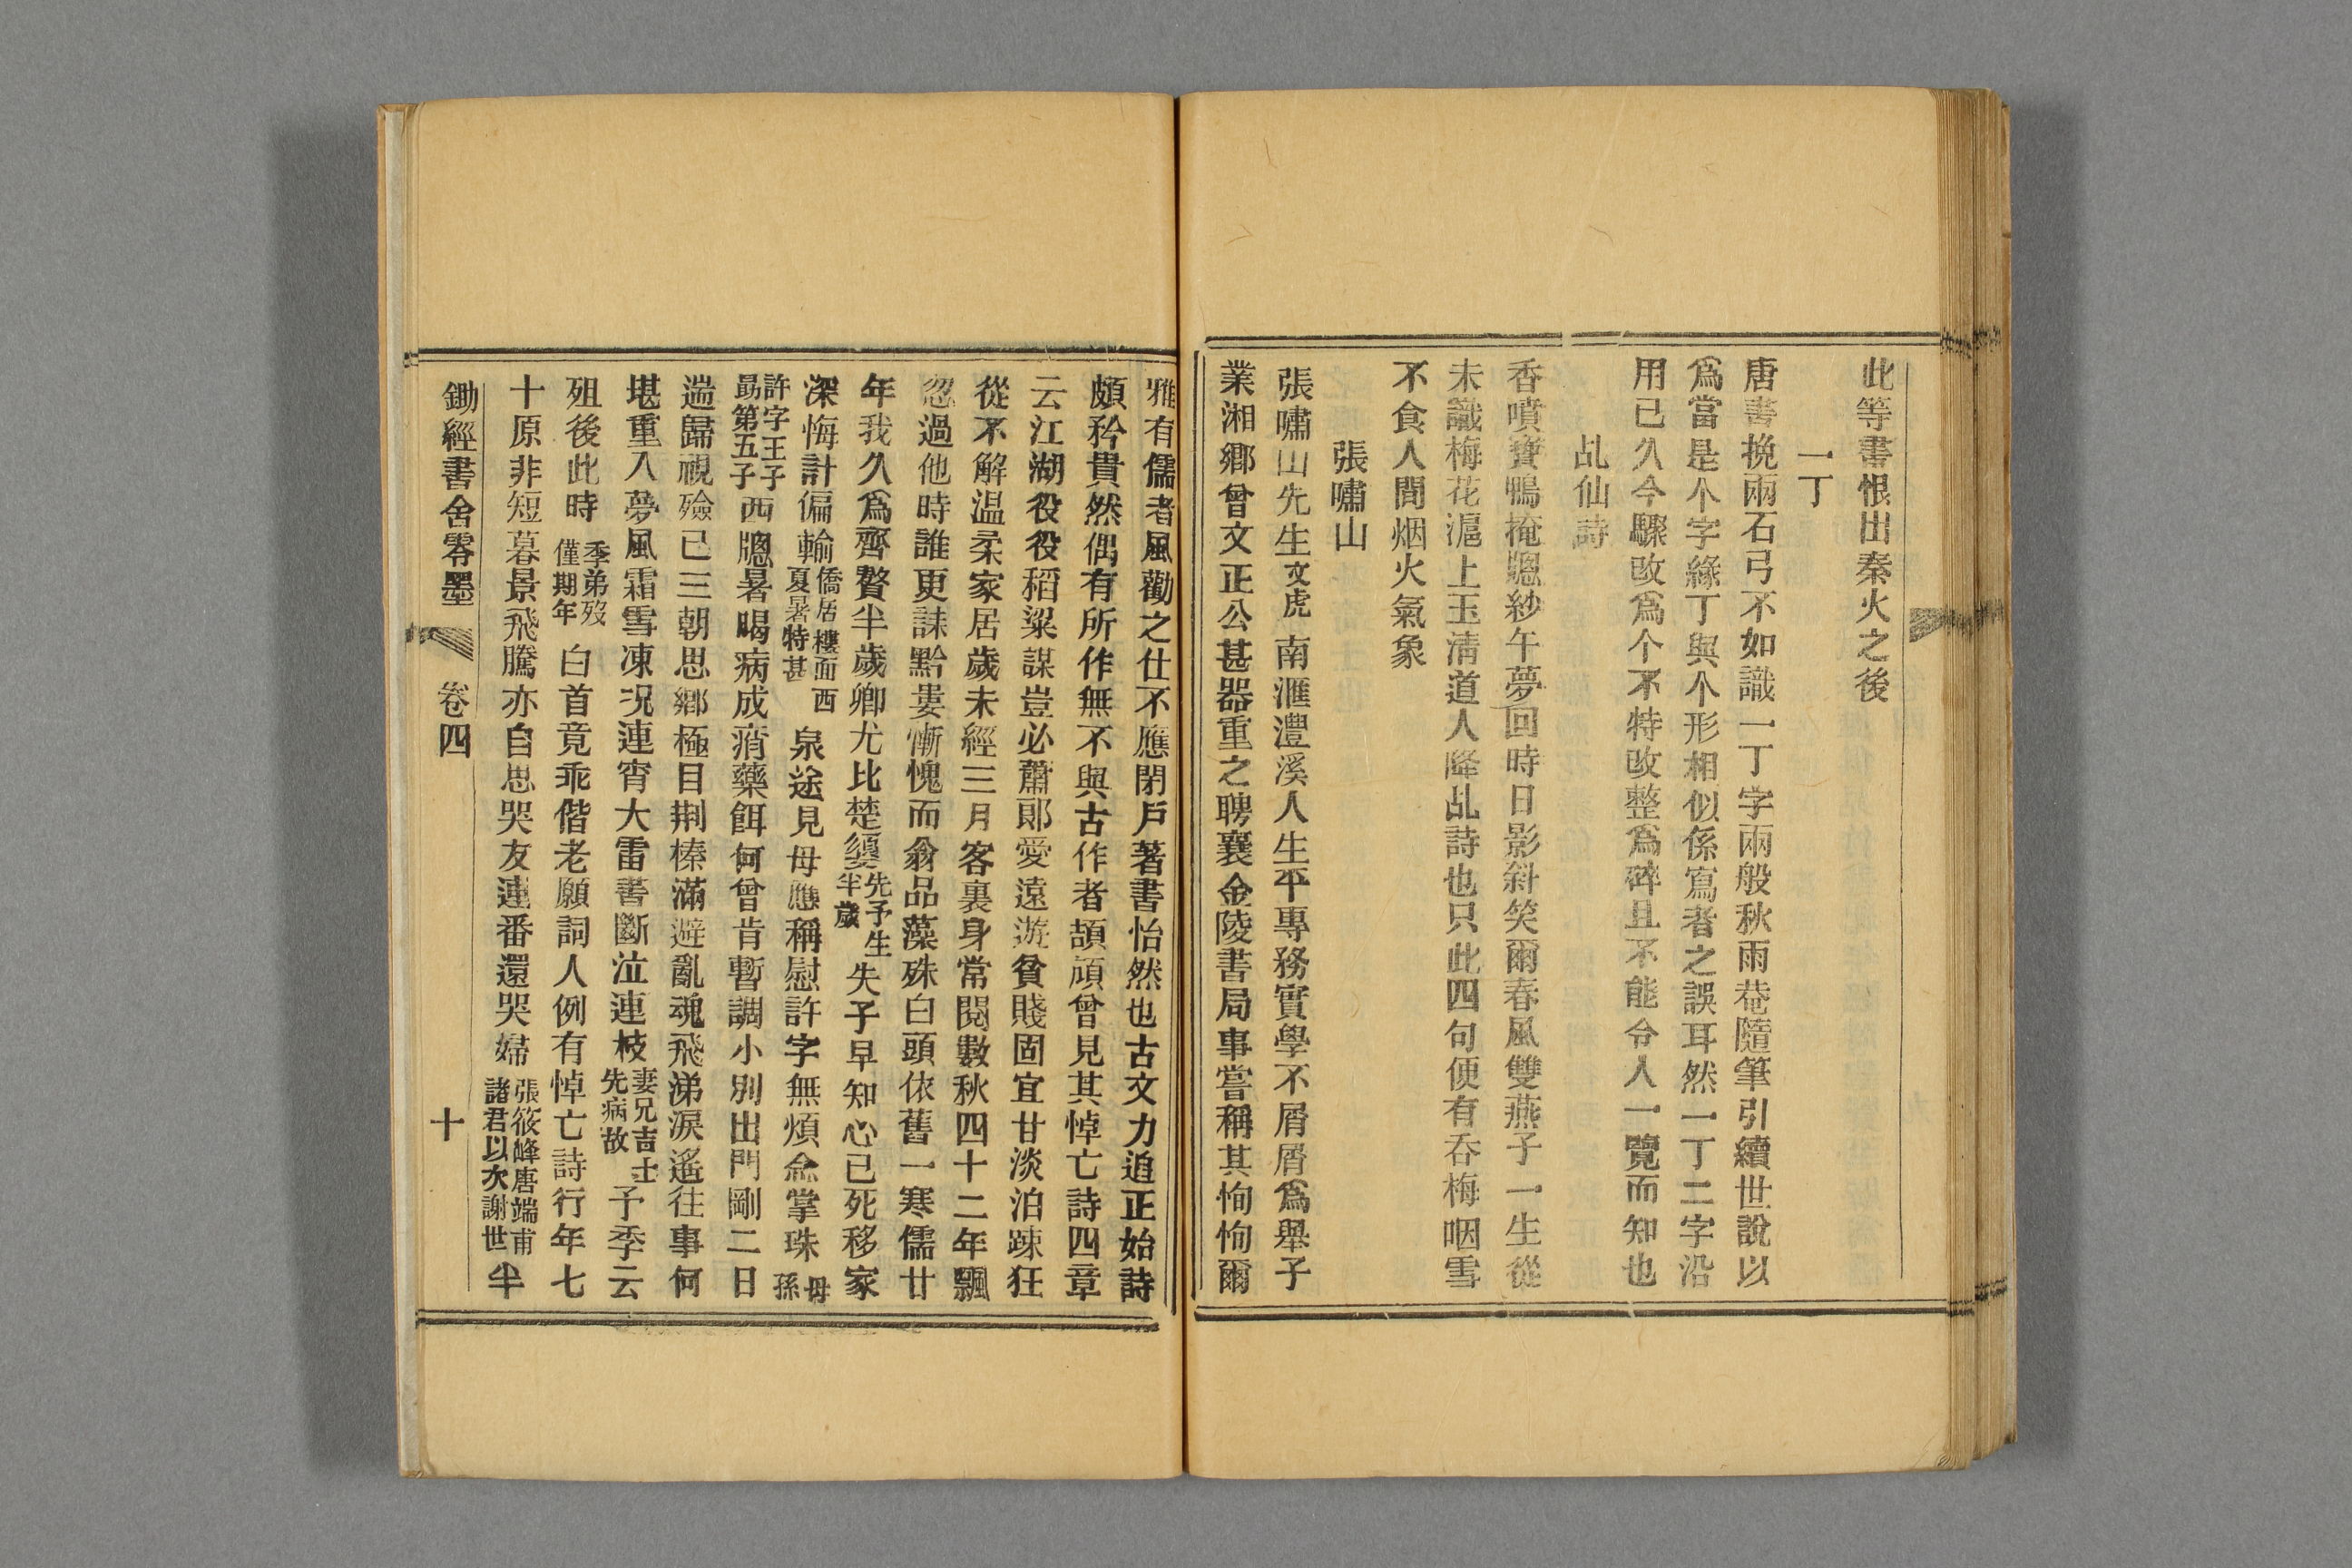 此等書恨出秦火之後
一丁
唐書挽兩石弓不如識一丁字兩般秋雨菴隨筆引續世說以
爲當是个字緣丁與个形相似係寫者之誤耳然一丁二字沿
用已久今驟改爲个不特改整爲碎且不能令人一覽而知也
乩仙詩
香噴寶鴨掩牕紗午夢回時日影斜笑爾春風雙燕子一生從
未識梅花滬上玉清道人降乩詩也只此四句便有吞梅咽雪
不食人間烟火氣象
張嘯山
張嘯山先生文虎南滙澧溪人生平專務實學不屑屑爲舉子
業湘鄉曾文正公甚器重之聘襄金陵書局事嘗稱其恂恂爾
雅有儒者風勸之仕不應閉戶著書怡然也古文力追正始詩
頗矜貴然偶有所作無不與古作者頡頏曾見其悼亡詩四章
云江湖役役稻粱謀豈必蕭郎愛遠遊貧賤固宜甘淡泊踈狂
從不解温柔家居歲未經三月客裏身常閱數秋四十二年飄
忽過他時誰更誄黔婁慚愧而翁品藻殊白頭依舊一寒儒廿
年我久爲齊贅半歲卿尤比楚嬃先予生半歲失子早知心已死移家
深悔計偏輸僑居樓面西夏暑特甚泉途見母應稱慰許字無煩念掌珠母孫
許字王子勗第五子西牕暑暍病成痟藥餌何曾肯暫調小別出門剛二日
遄歸視殮已三朝思鄉極目荆榛滿避亂魂飛涕淚遙往事何
堪重入夢風霜雪凍况連宵大雷書斷泣連枝妻兄吉士先病故予季云
殂後此時季弟歿僅期年白首竟乖偕老願詞人例有悼亡詩行年七
十原非短暮景飛騰亦自思哭友連番還哭婦張筱峰唐端甫諸君以次謝世半
鋤經書舍零墨 卷四 十